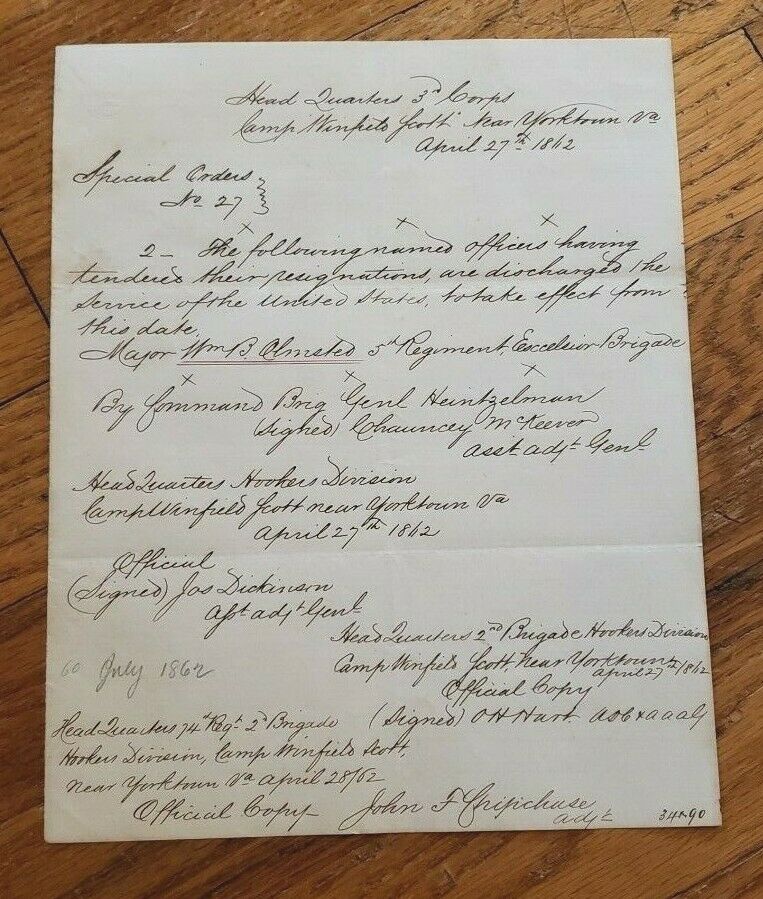 Head Quarters 3d Corps
Camp Winfield Scott Near Yorktown Va
April 27th 1862
Special Orders
No 27
x x x
2 - The following named officers having
tendered their resignations, are discharged the
Service of the United States, to take effect from
this date,
Major Wm B. Olmsted 5th Regiment, Excelsior Brigade
x x x
By Command Brig Genl Heintzelman
(signed) Chauncey McKeever
asst adjt Genl
Head Quarters Hookers Division
Camp Winfield Scott near Yorktown Va
April 27th 1862
Official
(Signed) Jos Dickinson
asst adjt Genl
Head Quarters 2nd Brigade Hookers Division
Camp Winfield Scott near Yorktown
April 27th 1862
Official Copy
(Signed) O H Hart
60 July 1862
Head Quarters 74th Regt 2d Brigade
Hookers Division, Camp Winfield Scott,
near Yorktown Va April 28/62
Official Copy John F
adjt